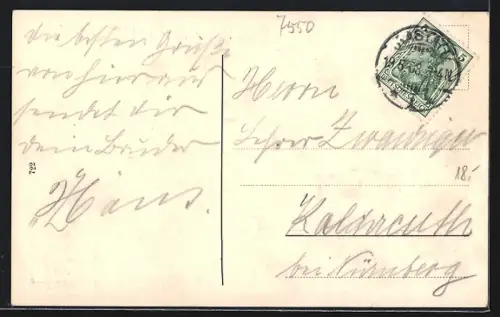 7550
die besten Grüße
von hier aus
sendet dir
dein Bruder
Hans.
722
Herrn
Lehrer
18.-
Kalchreuth
bei Nürnberg